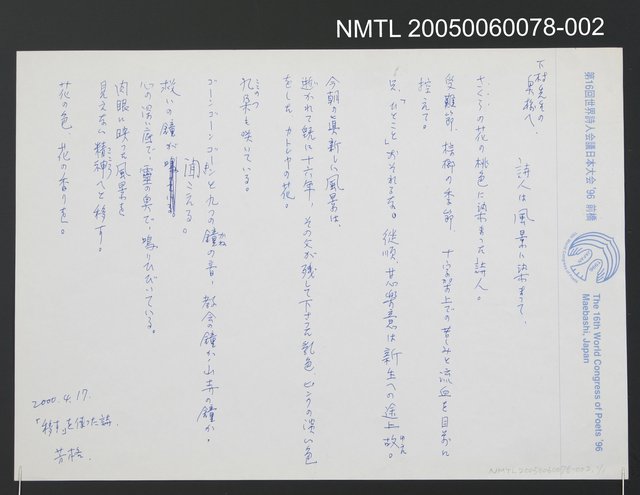 NMTL 20050060078-002
第16回世界詩人会議日本大会 '96 前橋
The 16th World Congress of Poets '96
Maebashi, Japan
詩人は風景に染まって、
さくらの花の桃色に染まった詩人。
受難節 棕櫚の季節 十字架上での苦しみと流血を目前に
控えて。
「ひとこと」おそれるな。従順、甘楽意は新生への途上故。
今朝の真新しい風景は、
逝かれて既に十六年、その父が残して下さった乳色 ピンクの淡い色
をした カトレヤの花。
九朵も咲いている。
ゴーンゴーンゴーンと九つの鐘の音、教会の鐘か山寺の鐘か。
聞こえる。
救いの鐘が
心の深い底で、霊の奥で、鳴りひびいている。
肉眼に映った風景を
見えない精神へと移す。
花の色 花の香りを。
2000.4.17.
「移す」を使った詩
芳梧.
NMTL 20050060078-002 1/1